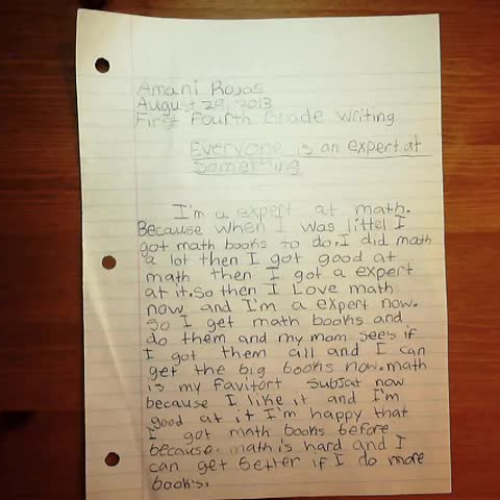 Amani Rojas
August 29, 2013
First Fourth Grade Writing
Everyone is an expert at
Something
I'm a expert at math.
Because when I was littel I
got math books to do. I did math
a lot then I got good at
math then I got a expert
at it. So then I Love math
now and I'm a expert now.
So I get math books and
do them and my mom sees if
I got them all and I can
get the big books now. math
is my favitort subjat now
because I like it and I'm
good at it I'm happy that
I got math books before
because math is hard and I
can get better if I do more
books.